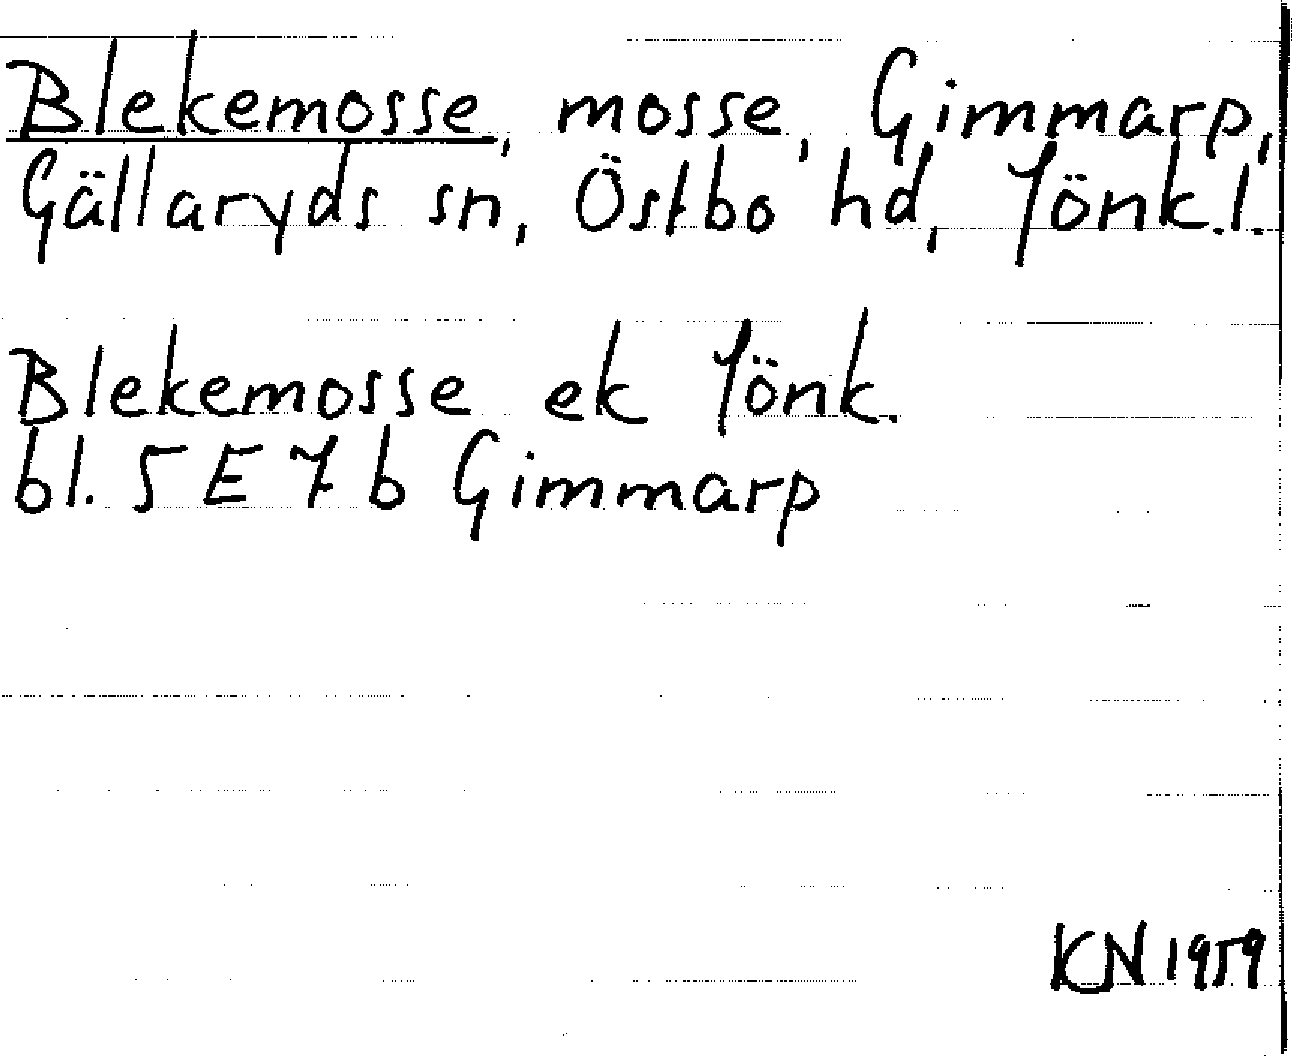 Blekemosse, mosse, Gimmarp,
Gällaryds sn, Östbo hd, Jönk.l.
Blekemosse ek Jönk.
bl. 5 E 7 b Gimmarp
KN 1959